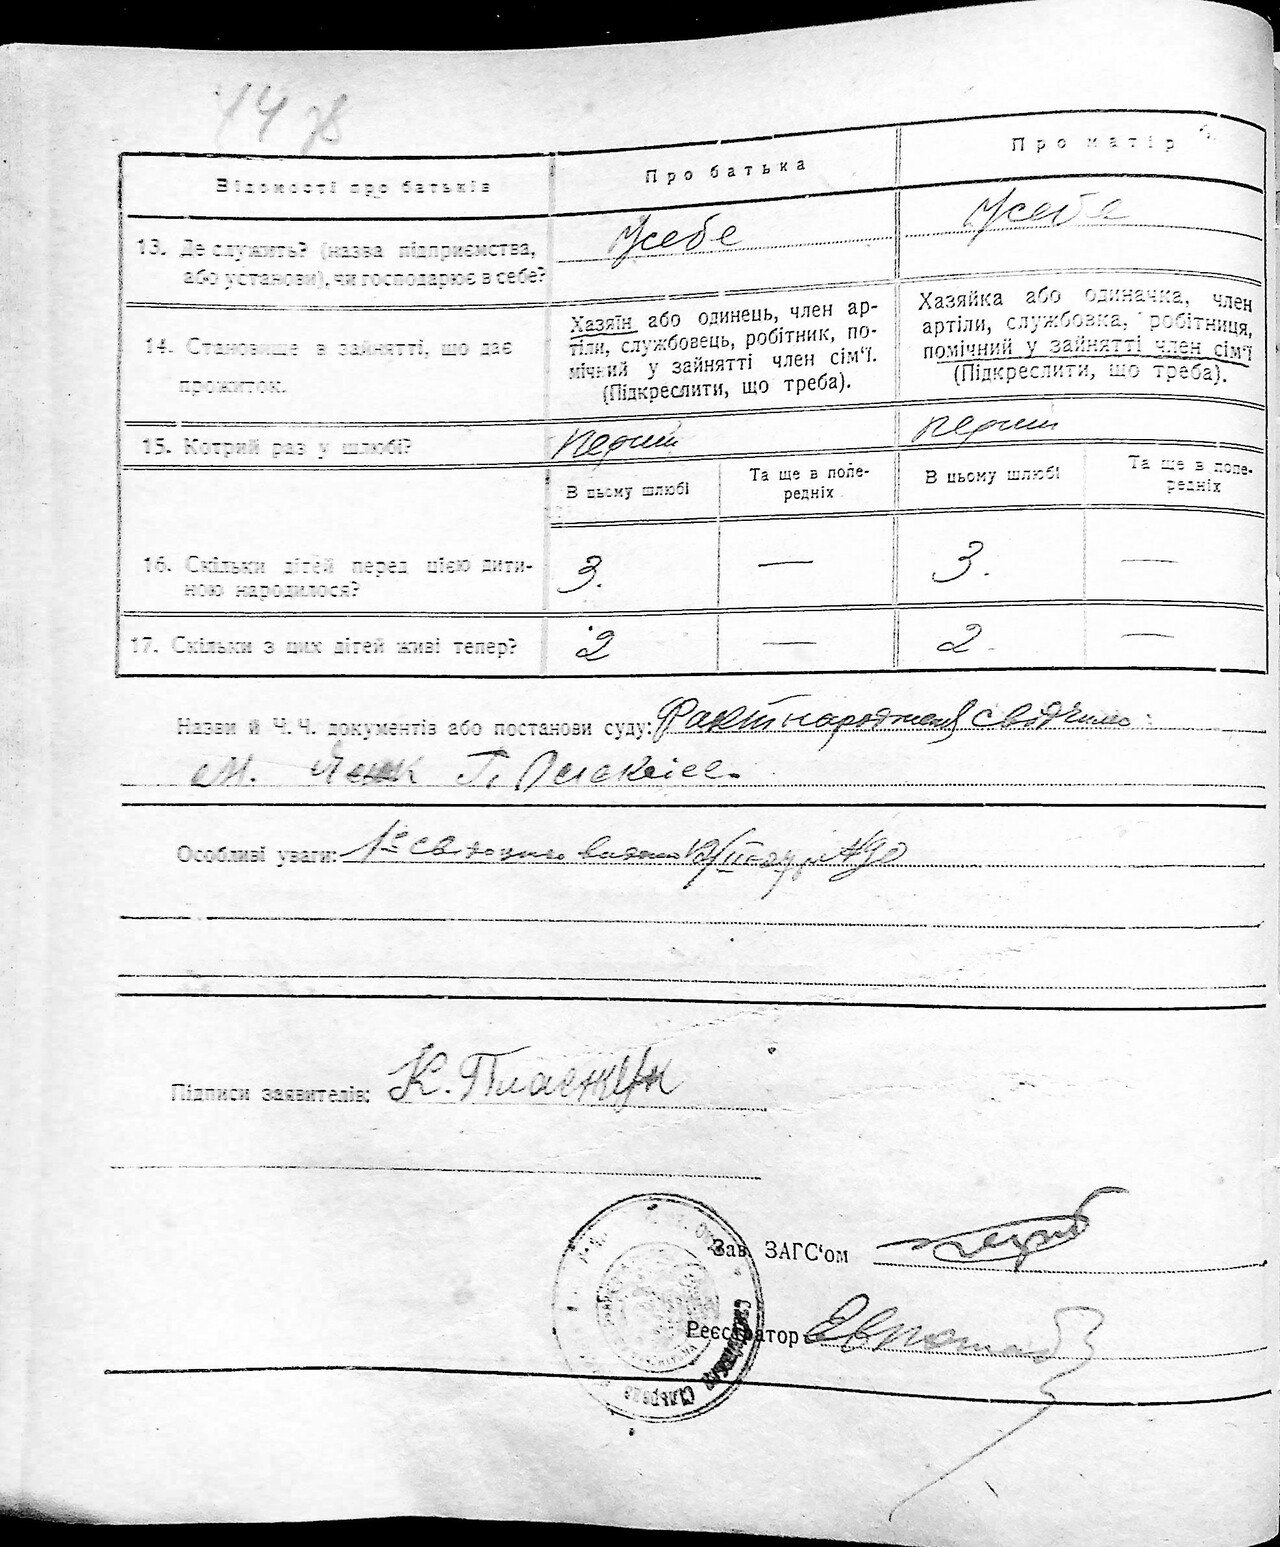 14 зв
Відомості про батьків
Про батька
Про матір
13. Де служить? (назва підприємства,
або установи), чи господарює в себе?
Усебе
Усебе
14. Становище в зайнятті, що дає
прожиток.
Хазяїн або одинець, член ар-
тіли, службовець, робітник, по-
мічний у зайнятті член сім'ї.
(Підкреслити, що треба).
Хазяйка або одиначка, член
артіли, службовка, робітниця,
помічний у зайнятті член сім'ї
(Підкреслити, що треба).
15. Котрий раз у шлюбі?
перший
перший
В цьому шлюбі
Та ще в попе-
редніх
В цьому шлюбі
Та ще в попе-
редніх
16. Скільки дітей перед цією дити-
ною народилося?
3.
—
3.
—
17. Скільки з цих дітей живі тепер?
2
—
2
—
Назви й Ч. Ч. документів або постанови суду: Факт народження
Особливі уваги:
Підписи заявителів: К.
Зав. ЗАГС'ом
Реєстратор
Сільрада